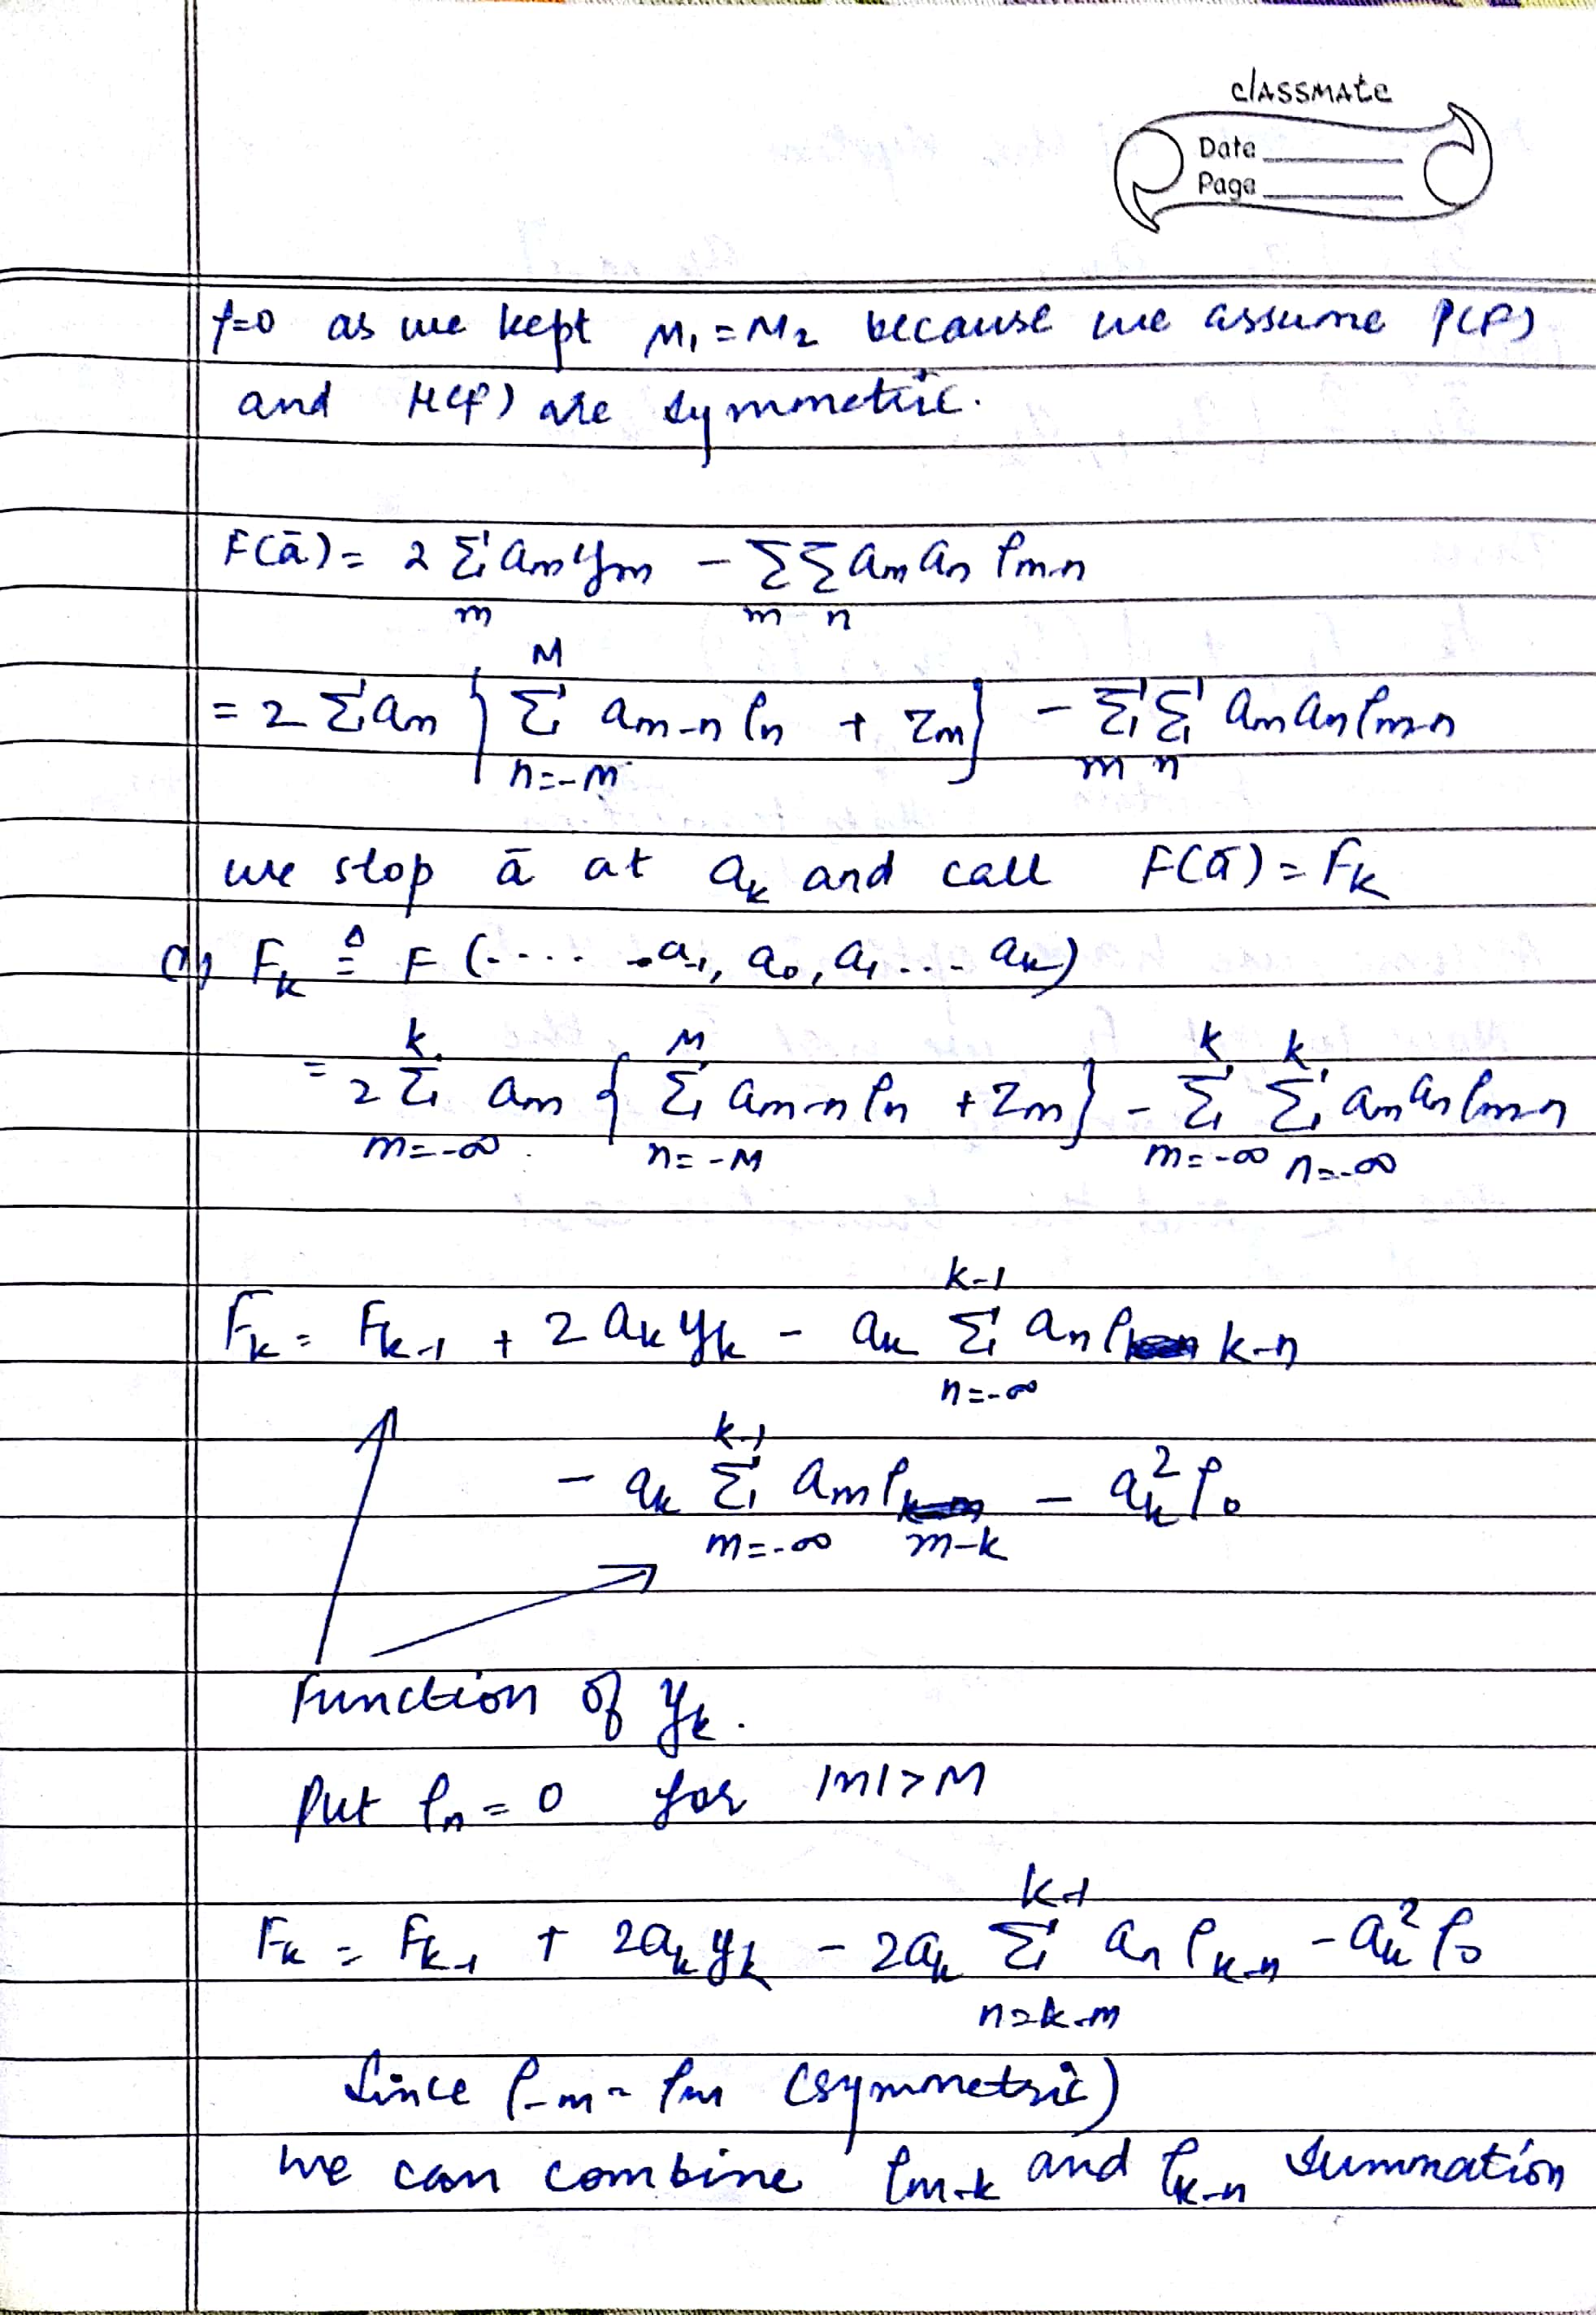 classmate
Date
Page
f=0 as we kept M₁ = M₂ because we assume P(f)
and H(f) are symmetric.
F(ā) = 2 Σ_m a_m y_m − Σ_m Σ_n a_m a_n ρ_{m-n}
= 2 Σ a_m { Σ_{n=-M}^{M} a_{m-n} ρ_n + z_m } − Σ_m Σ_n a_m a_n ρ_{m-n}
we stop ā at a_k and call F(ā) = F_k
F_k ≜ F (..... a_{-1}, a_0, a_1 ... a_k)
= 2 Σ_{m=-∞}^{k} a_m { Σ_{n=-M}^{M} a_{m-n} ρ_n + z_m } − Σ_{m=-∞}^{k} Σ_{n=-∞}^{k} a_m a_n ρ_{m-n}
F_k = F_{k-1} + 2 a_k y_k − a_k Σ_{n=-∞}^{k-1} a_n ρ_{k-n}
− a_k Σ_{m=-∞}^{k-1} a_m ρ_{m-k} − a_k² ρ_0
Function of y_k.
Put ρ_n = 0 for |n| > M
F_k = F_{k-1} + 2a_k y_k − 2a_k Σ_{n=k-M}^{k-1} a_n ρ_{k-n} − a_k² ρ_0
Since ρ_{-m} = ρ_m (symmetric)
we can combine ρ_{m-k} and ρ_{k-n} summation